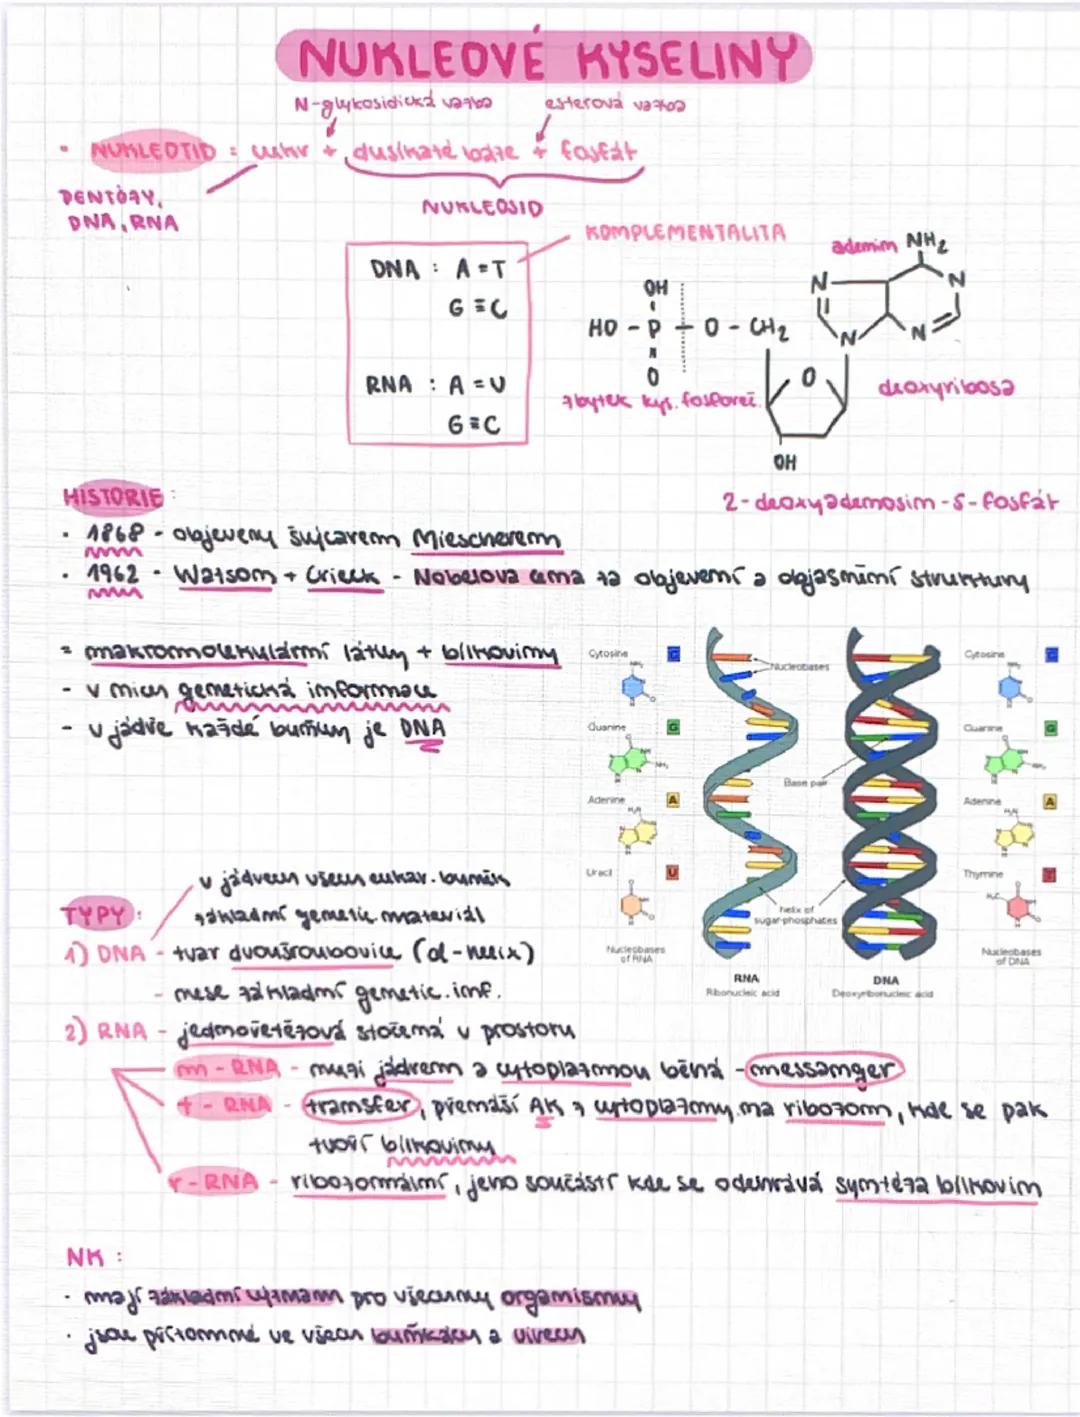 NUKLEOVÉ KYSELINY
N-glykosidická vazba
esterová vazba
• NUKLEOTID = cukr + dusíkaté báze + fosfát
PENTÓZY,
DNA, RNA
NUKLEOSID
KOMPLEMENTALITA
DNA : A = T
G ≡ C
RNA : A = U
G ≡ C
adenin NH2
N
N
N
N
OH
HO - P - O - CH2
O
O
zbytek kys. fosforeč.
deoxyribosa
OH
2-deoxyadenosin-5-fosfát
HISTORIE :
• 1868 - objeveny švýcarem Miescherem
• 1962 - Watson + Crieck - Nobelova cena za objevení a objasnění struktury
= makromolekulární látky + bílkoviny
- v nich genetická informace
- v jádře každé buňky je DNA
Cytosine
C
Guanine
G
Adenine
A
Uracil
U
Nucleobases
of RNA
Nucleobases
Base pair
helix of
sugar-phosphates
RNA
Ribonucleic acid
DNA
Deoxyribonucleic acid
Cytosine
C
Guanine
G
Adenine
A
Thymine
T
Nucleobases
of DNA
v jádrech všech eukar. buněk
základní genetic. materiál
TYPY :
1) DNA - tvar dvoušroubovice (α-helix)
- nese základní genetic. inf.
2) RNA - jednořetězová stočená v prostoru
m - RNA - mezi jádrem a cytoplazmou běhá - messanger
t - RNA - transfer, přenáší AK z cytoplazmy na ribozom, kde se pak
tvoří bílkoviny
r - RNA - ribozomální, jeho součástí kde se odehrává syntéza bílkovin
NK :
• mají základní význam pro všechny organismy
• jsou přítomné ve všech buňkách a virech